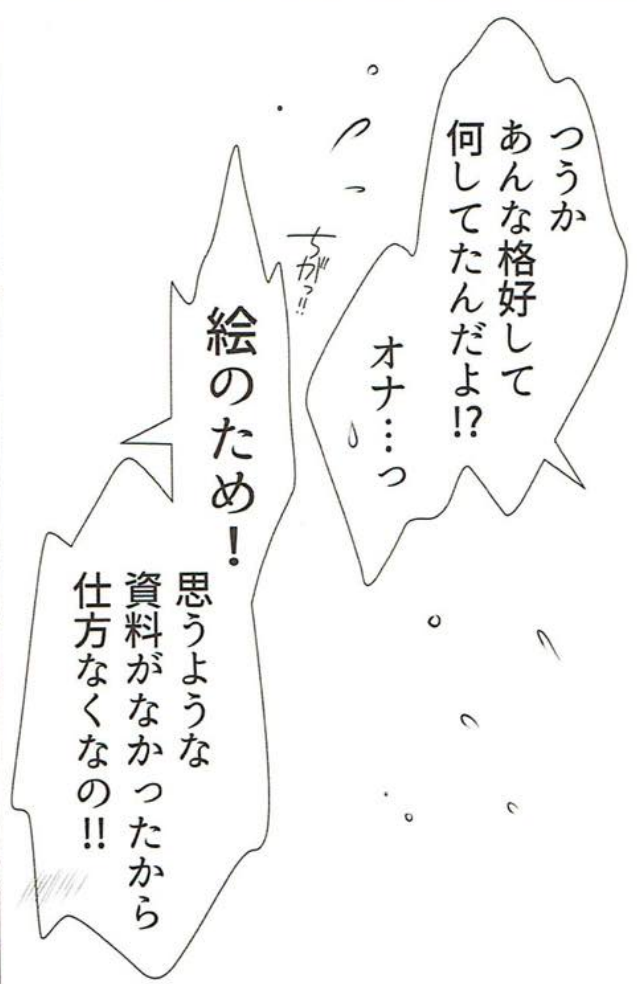 つうか
あんな格好して
何してたんだよ!?
オナ…っ
ちがっ!!
絵のため!
思うような
資料がなかったから
仕方なくなの!!